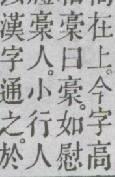 在上。今字高
槀曰槀。如慰
槀人。小行人
漢字通之。於